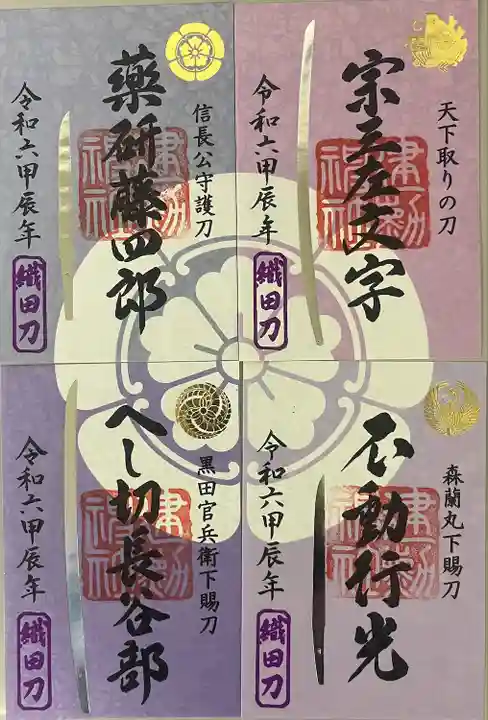 天下取りの刀
宗三左文字
建勲神社
令和六甲辰年
織田刀
信長公守護刀
薬研藤四郎
建勲神社
令和六甲辰年
織田刀
森蘭丸下賜刀
不動行光
建勲神社
令和六甲辰年
織田刀
黒田官兵衛下賜刀
へし切長谷部
建勲神社
令和六甲辰年
織田刀